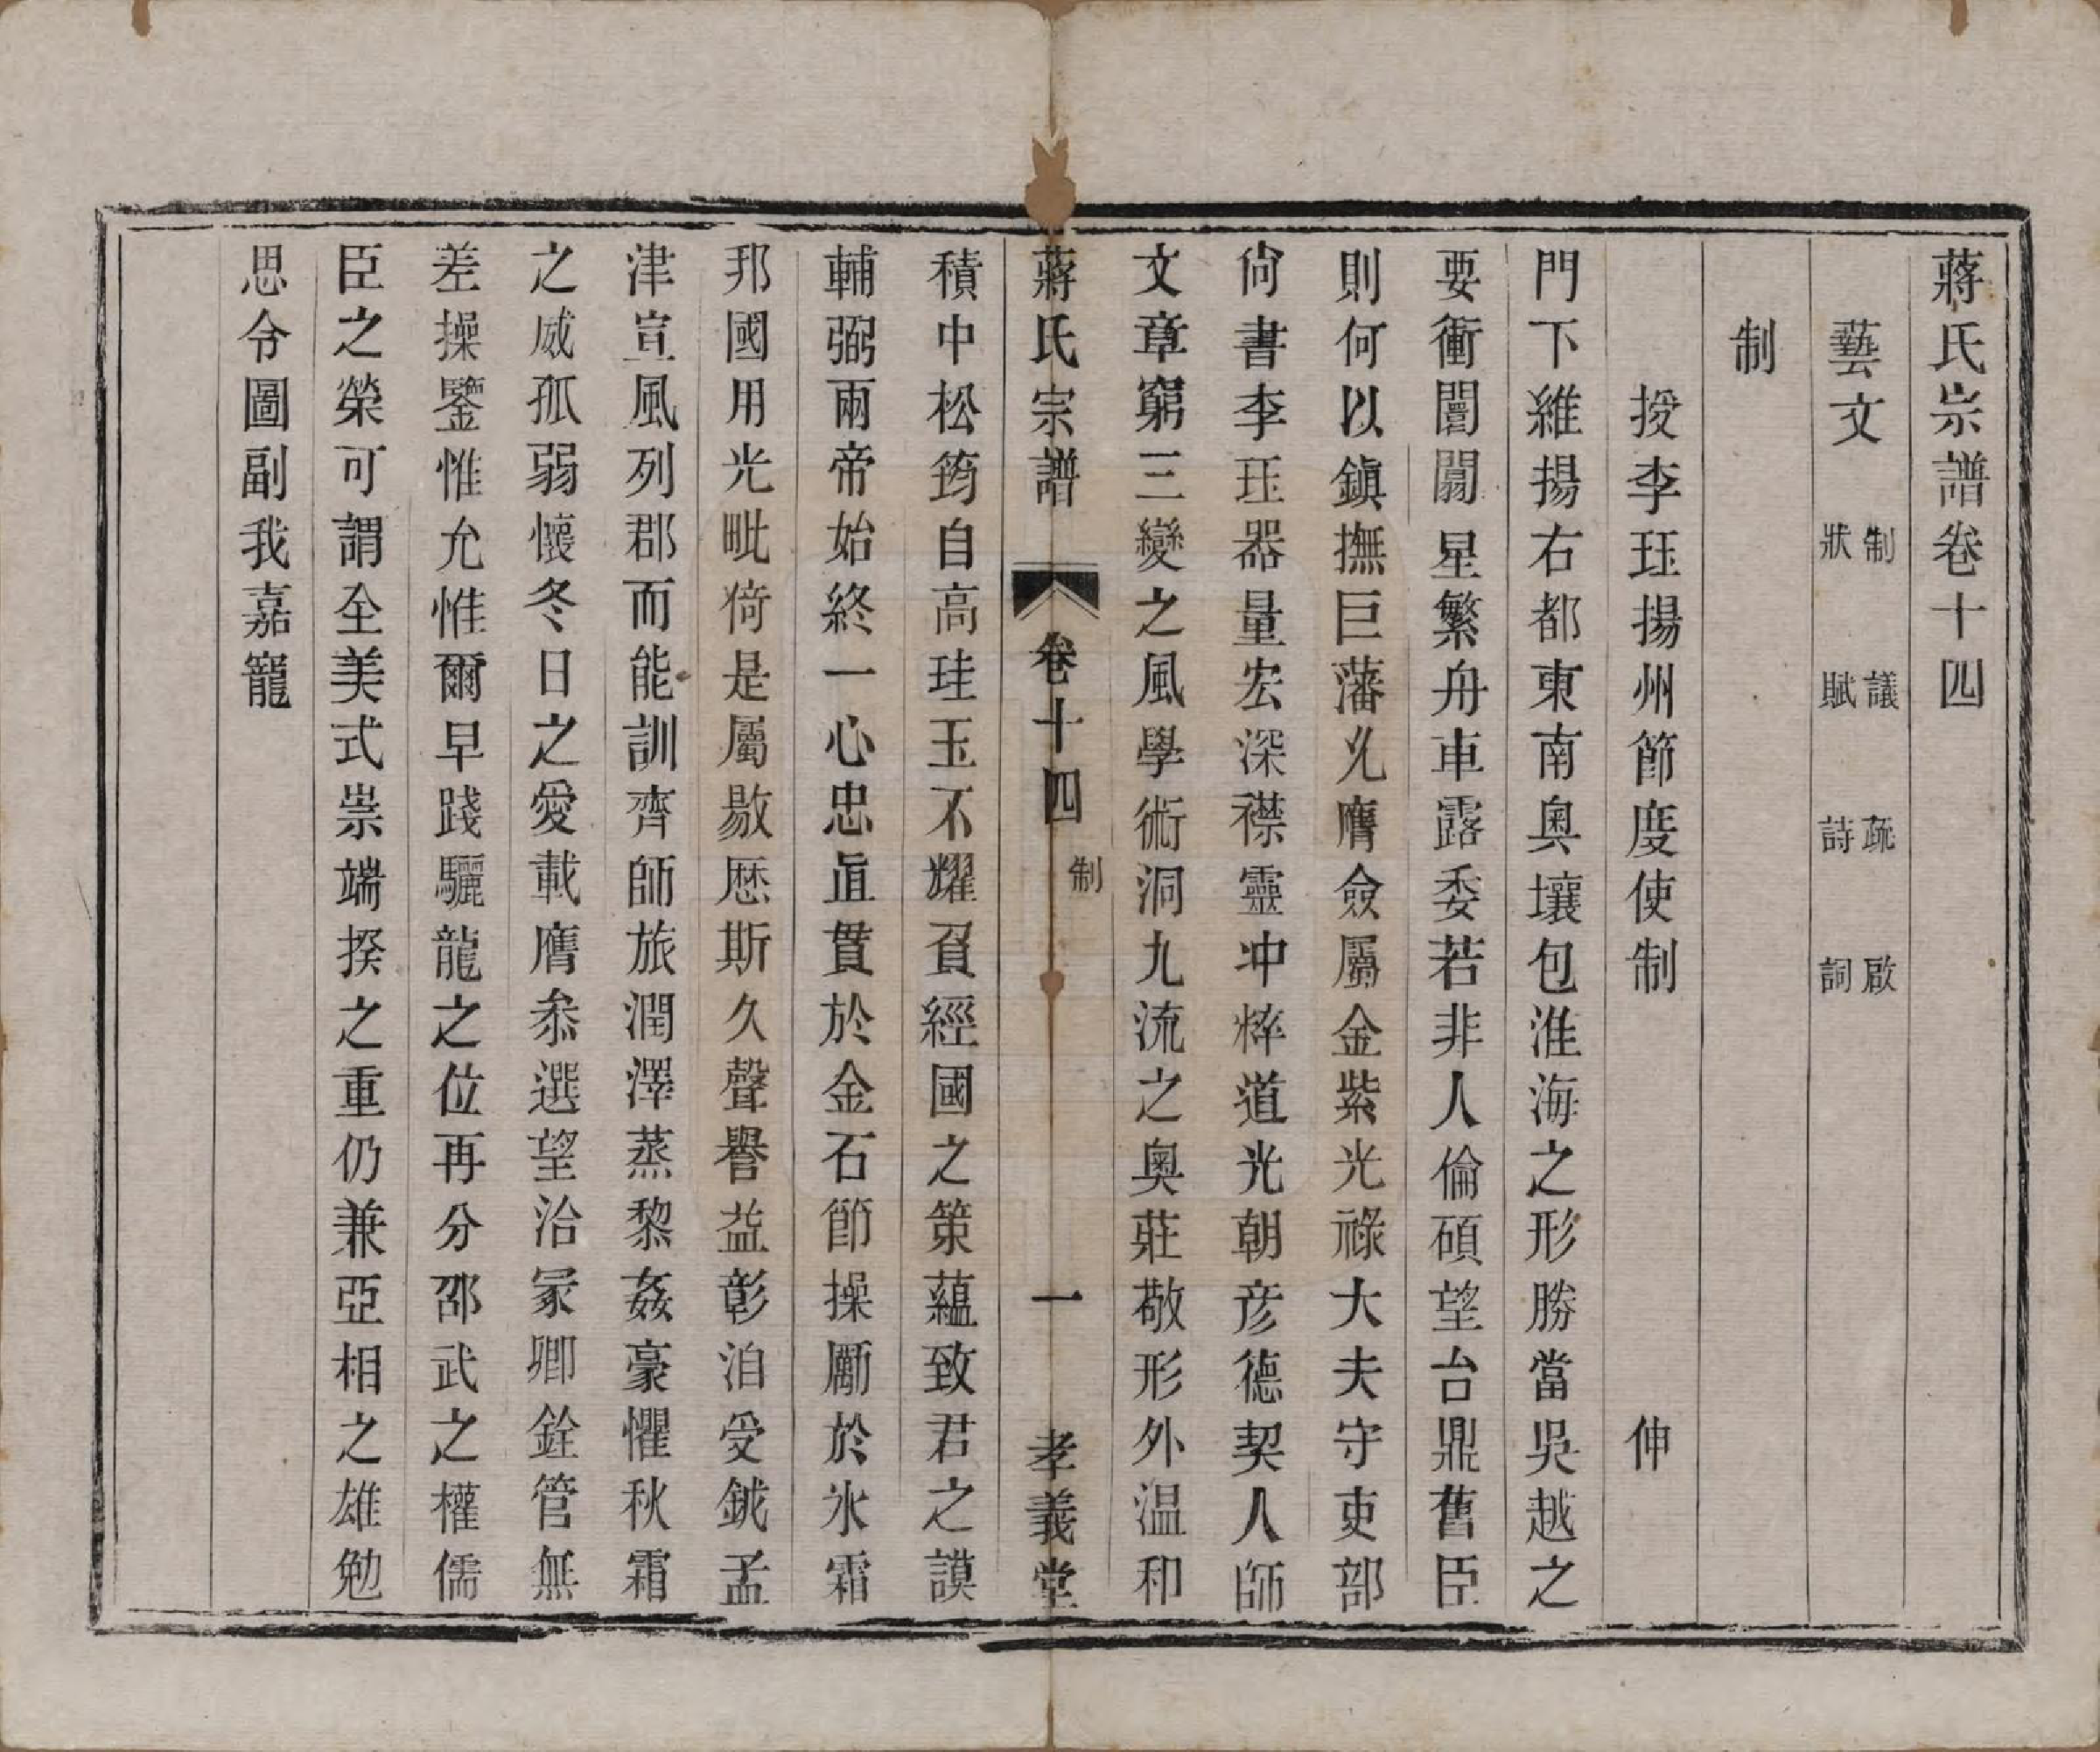 蔣氏宗譜卷十四
藝文 制 議 疏 啟 狀 賦 詩 詞
制
授李珏揚州節度使制 伸
門下維揚右都東南奧壤包淮海之形勝當吳越之
要衝闤闠星繁舟車露委若非人倫碩望台鼎舊臣
則何以鎮撫巨藩允膺僉屬金紫光祿大夫守吏部
尚書李珏器量宏深襟靈冲粹道光朝彥德契人師
文章窮三變之風學術洞九流之奧莊敬形外温和
蔣氏宗譜 卷十四 制 一 孝義堂
積中松筠自高珪玉不耀負經國之策蘊致君之謨
輔弼兩帝始終一心忠直貫於金石節操勵於氷霜
邦國用光毗倚是屬敭歷斯久聲譽益彰洎受鉞孟
津宣風列郡而能訓齊師旅潤澤蒸黎姦豪懼秋霜
之威孤弱懷冬日之愛載膺叅選望洽冢卿銓管無
差操鑒惟允惟爾早踐驪龍之位再分邵武之權儒
臣之榮可謂全美式崇端揆之重仍兼亞相之雄勉
思令圖副我嘉寵